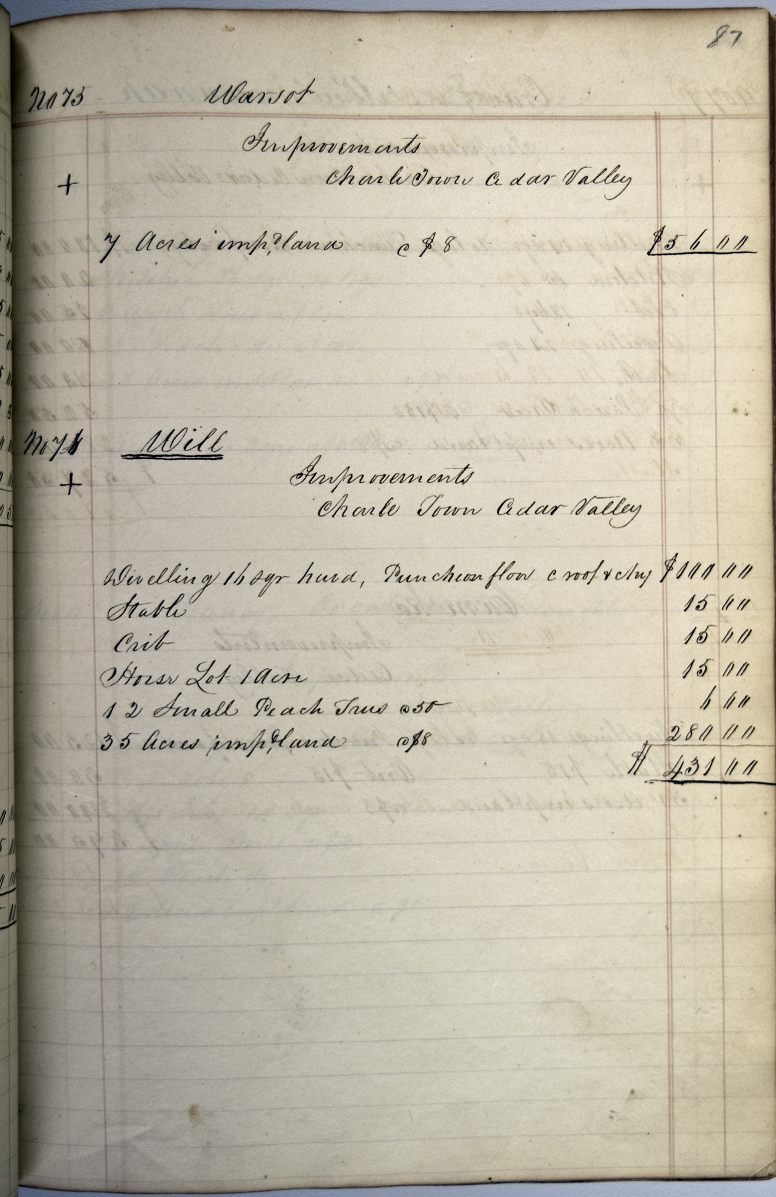 87
No 75 Warsot
Improvements
+ Charle Town Cedar Valley
7 Acres imp,d land @ $8 $56 00
No 76 Will
Improvements
+ Charle Town Cedar Valley
Dwelling 16 sqr hewd, Puncheon floor c roof & chy $100 00
Stable 15 00
Crib 15 00
Horse Lot 1 Acre 15 00
12 Small Peach Trees @ 50 6 00
35 Acres imp,d land @ $8 280 00
$ 431 00